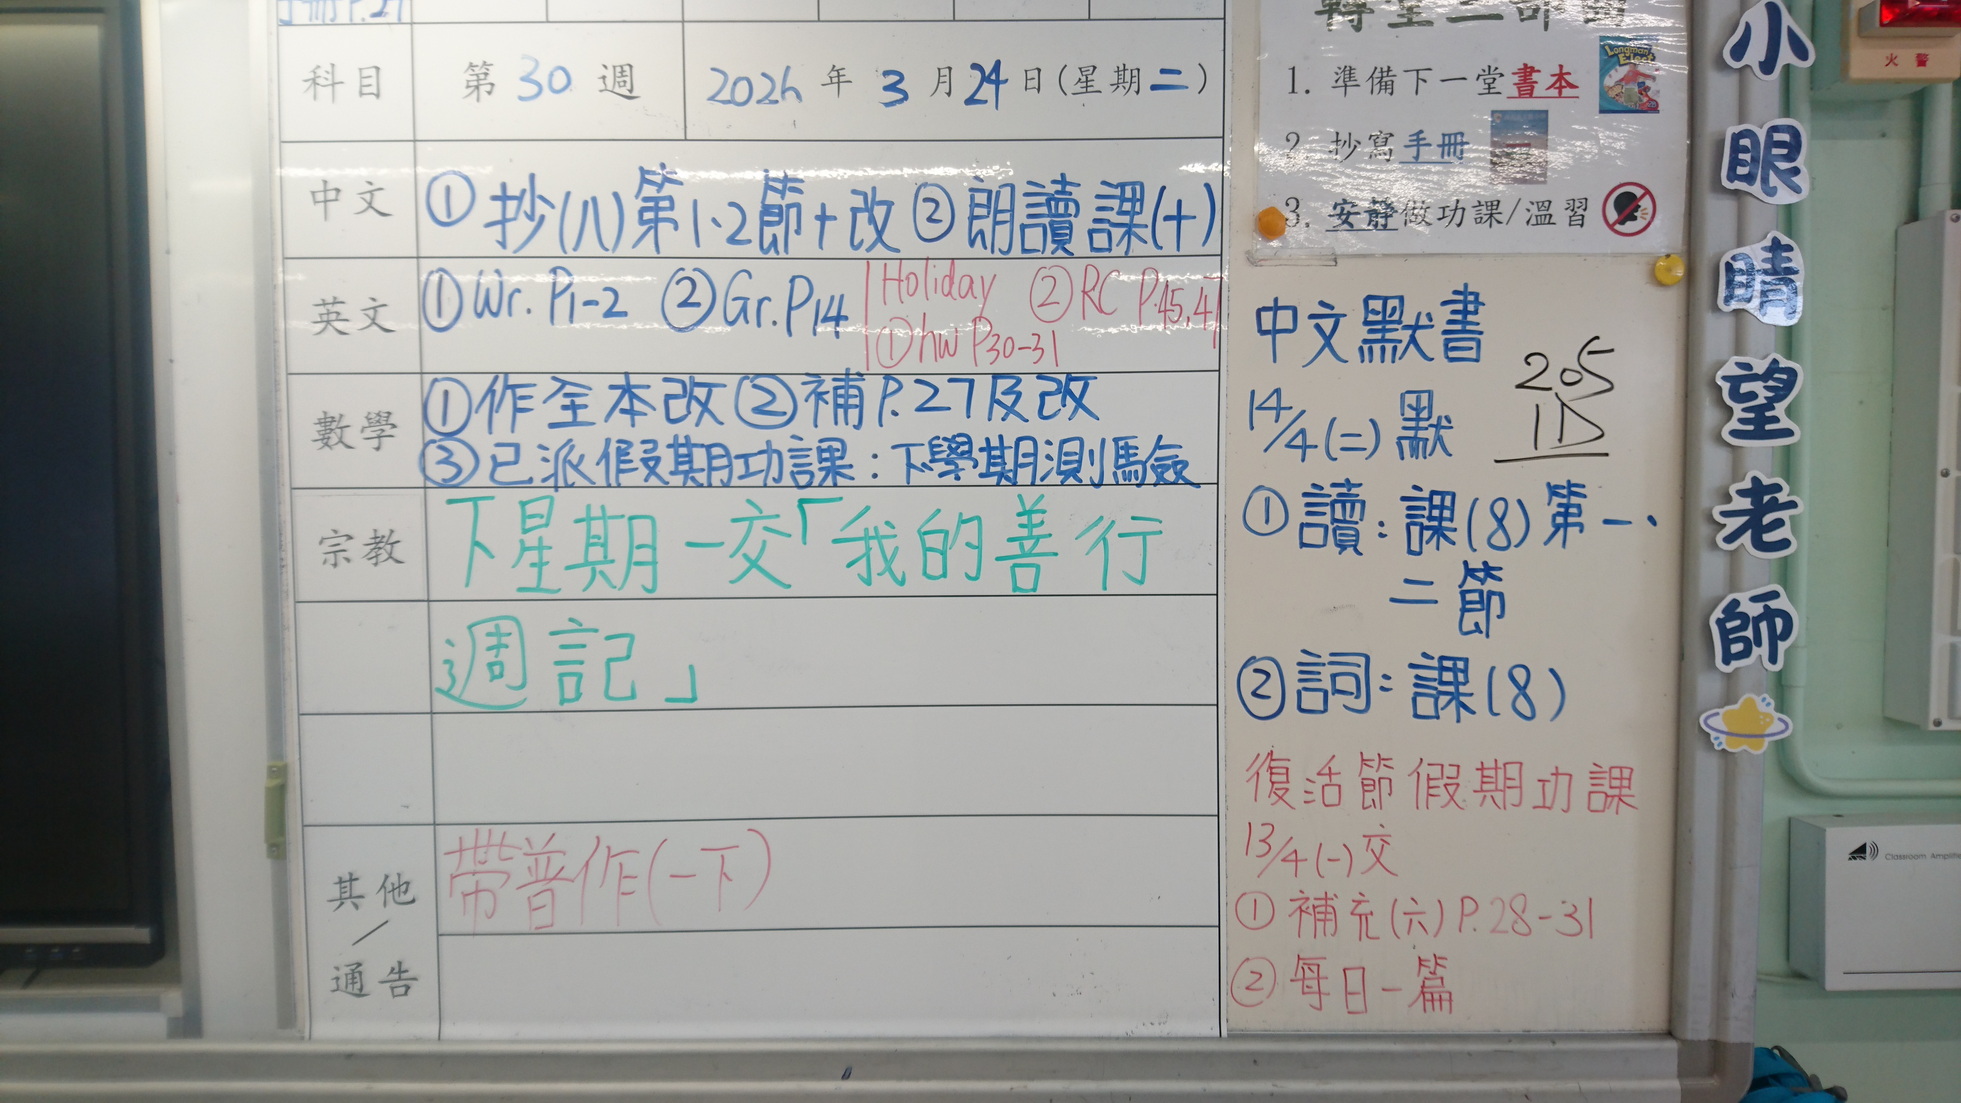 科目 第 30 週 2026 年 3 月 24 日(星期二)
中文 ①抄(八)第1、2節+改 ②朗讀課(十)
英文 ①Wr. P1-2 ②Gr. P14 Holiday ②RC P.45,47
①hw P30-31
數學 ①作全本改②補P.27及改
③已派假期功課:下學期測驗
宗教 下星期一交「我的善行
週記」
其他/通告 帶普作(一下)
1. 準備下一堂書本
2. 抄寫手冊
3. 安靜做功課/溫習
Longman Elect
中文默書
205
1D
14/4(二)默
①讀:課(8)第一、
二節
②詞:課(8)
復活節假期功課
13/4(一)交
①補充(六)P.28-31
②每日一篇
小眼睛望老師
火警
Classroom Amplifie